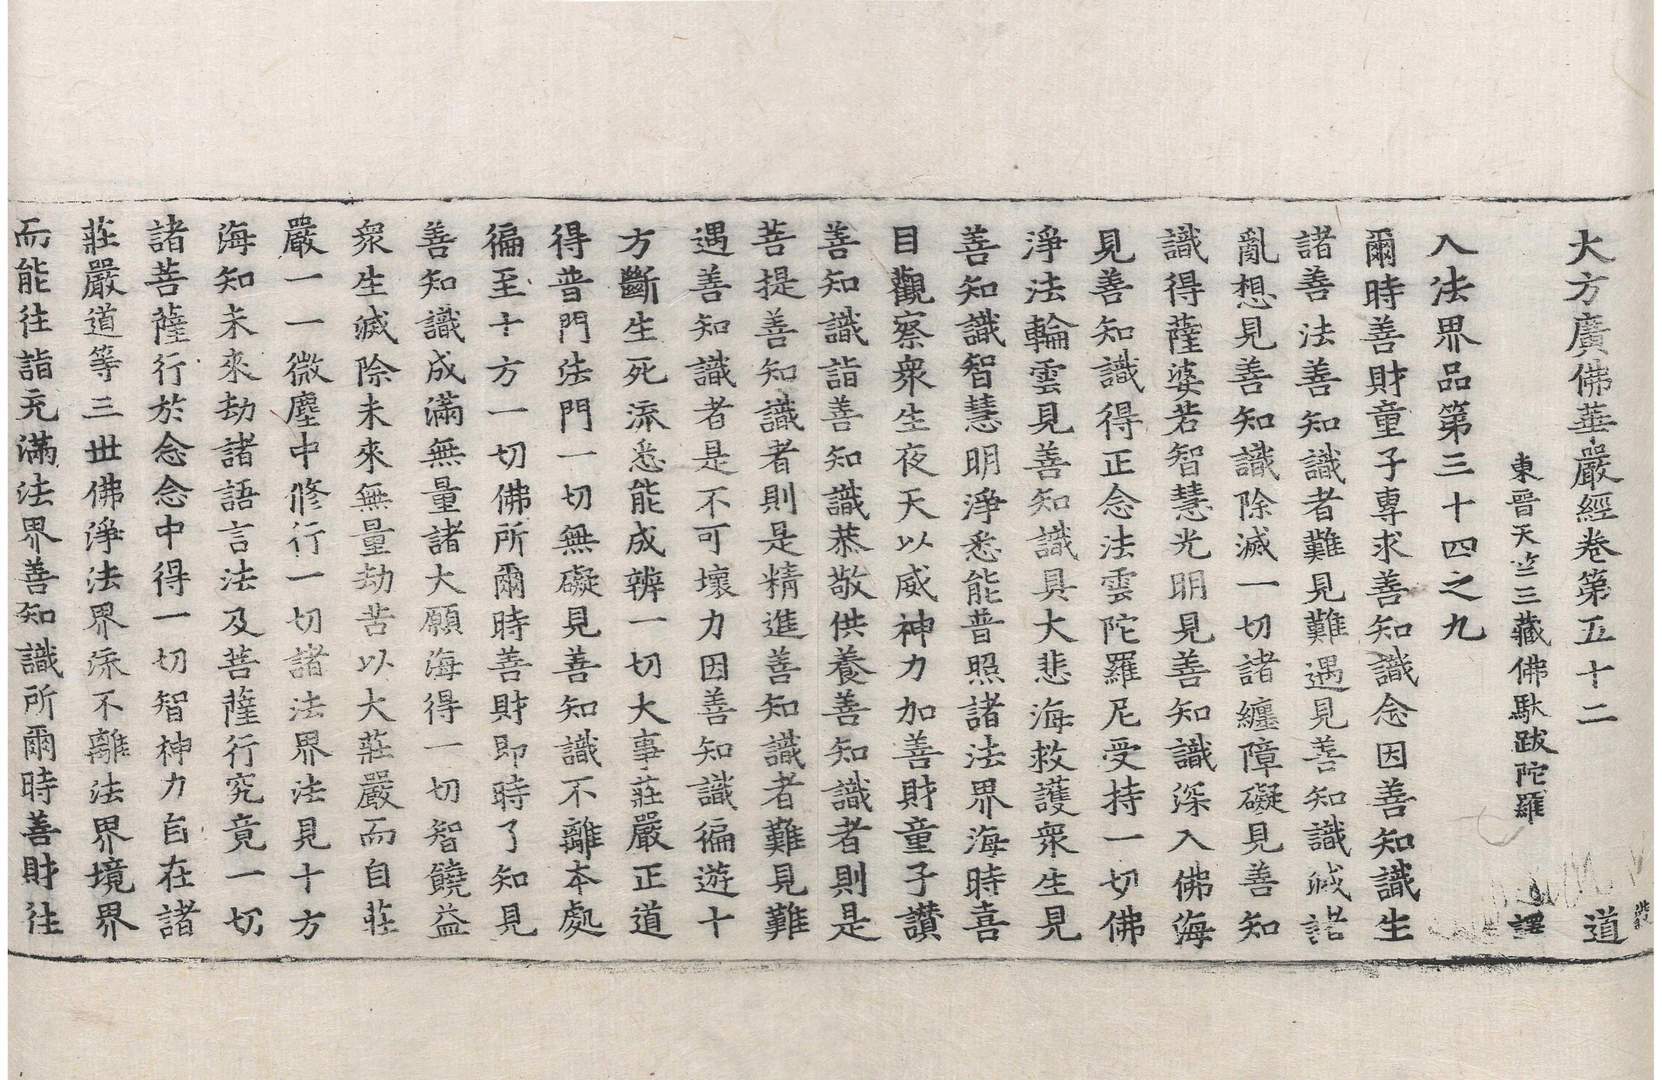 大方廣佛華嚴經卷第五十二 道
東晉天竺三藏佛馱跋陀羅 譯
入法界品第三十四之九
爾時善財童子專求善知識念因善知識生
諸善法善知識者難見難遇見善知識滅諸
亂想見善知識除滅一切諸纏障礙見善知
識得薩婆若智慧光明見善知識深入佛海
見善知識得正念法雲陀羅尼受持一切佛
淨法輪雲見善知識具大悲海救護衆生見
善知識智慧明淨悉能普照諸法界海時喜
目觀察衆生夜天以威神力加善財童子讃
善知識詣善知識恭敬供養善知識者則是
菩提善知識者則是精進善知識者難見難
遇善知識者是不可壞力因善知識徧遊十
方斷生死流悉能成辨一切大事莊嚴正道
得普門法門一切無礙見善知識不離本處
徧至十方一切佛所爾時善財即時了知見
善知識成滿無量諸大願海得一切智饒益
衆生滅除未來無量劫苦以大莊嚴而自莊
嚴一一微塵中修行一切諸法界法見十方
海知未來劫諸語言法及菩薩行究竟一切
諸菩薩行於念念中得一切智神力自在諸
莊嚴道等三世佛淨法界流不離法界境界
而能往詣充滿法界善知識所爾時善財往